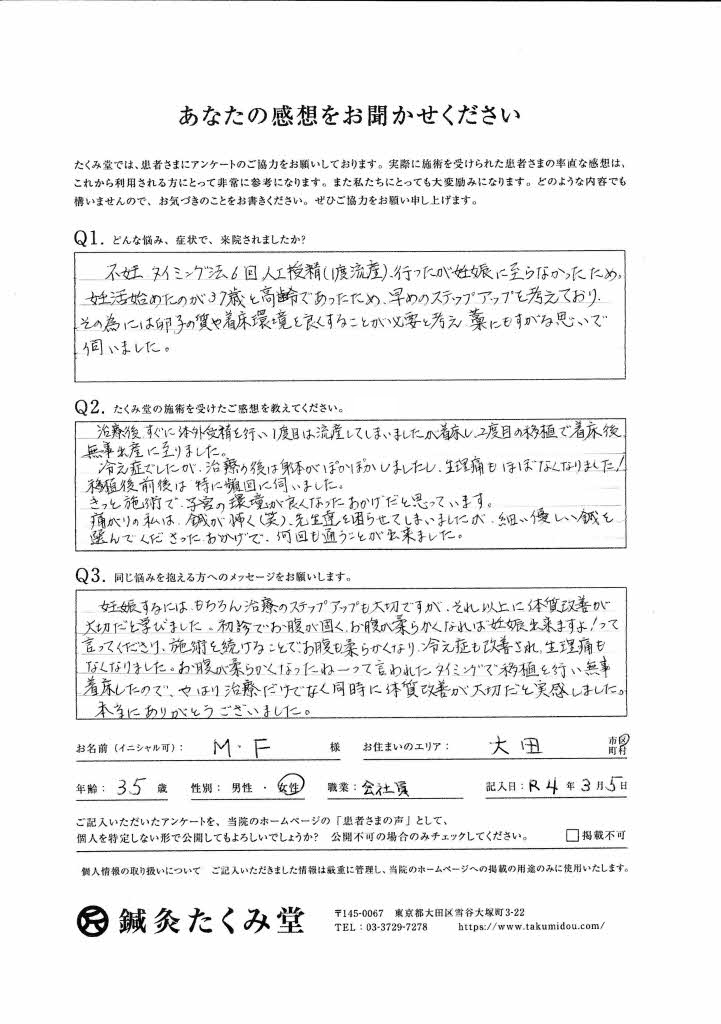 あなたの感想をお聞かせください
たくみ堂では、患者さまにアンケートのご協力をお願いしております。実際に施術を受けられた患者さまの率直な感想は、
これから利用される方にとって非常に参考になります。また私たちにとっても大変励みになります。どのような内容でも
構いませんので、お気づきのことをお書きください。ぜひご協力をお願い申し上げます。
Q1. どんな悩み、症状で、来院されましたか?
不妊 タイミング法6回 人工授精(1度流産)、行ったが妊娠に至らなかったため。
妊活始めたのが37歳と高齢であったため、早めのステップアップを考えており、
その為には卵子の質や着床環境を良くすることが必要と考え 藁にもすがる思いで
伺いました。
Q2. たくみ堂の施術を受けたご感想を教えてください。
治療後すぐに体外受精を行い1度目は流産してしまいましたが着床し、2度目の移植で着床後、
無事出産に至りました。
冷え症でしたが、治療の後は身体がぽかぽかしましたし、生理痛もほぼなくなりました!
移植後前後は特に頻回に伺いました。
きっと施術で、子宮の環境が良くなったおかげだと思っています。
痛がりの私は、鍼が怖く(笑)、先生達を困らせてしまいましたが、細い優しい鍼を
選んでくださったおかげで、何回も通うことが出来ました。
Q3. 同じ悩みを抱える方へのメッセージをお願いします。
妊娠するには、もちろん治療のステップアップも大切ですが、それ以上に体質改善が
大切だと学びました。初診でお腹が固く、お腹が柔らかくなれば妊娠出来ますよ!って
言ってくださり、施術を続けることでお腹も柔らかくなり、冷え症も改善され、生理痛も
なくなりました。お腹が柔らかくなったねーって言われたタイミングで移植を行い無事
着床したので、やはり治療だけでなく同時に体質改善が大切だと実感しました。
本当にありがとうございました。
お名前(イニシャル可): M・F 様 お住まいのエリア: 大田 市区町村
年齢: 35 歳 性別: 男性・女性 職業: 会社員 記入日: R4年3月5日
ご記入いただいたアンケートを、当院のホームページの「患者さまの声」として、
個人を特定しない形で公開してもよろしいでしょうか? 公開不可の場合のみチェックしてください。 □掲載不可
個人情報の取り扱いについて ご記入いただきました情報は厳重に管理し、当院のホームページへの掲載の用途のみに使用いたします。
鍼灸たくみ堂
〒145-0067 東京都大田区雪谷大塚町3-22
TEL:03-3729-7278 https://www.takumidou.com/